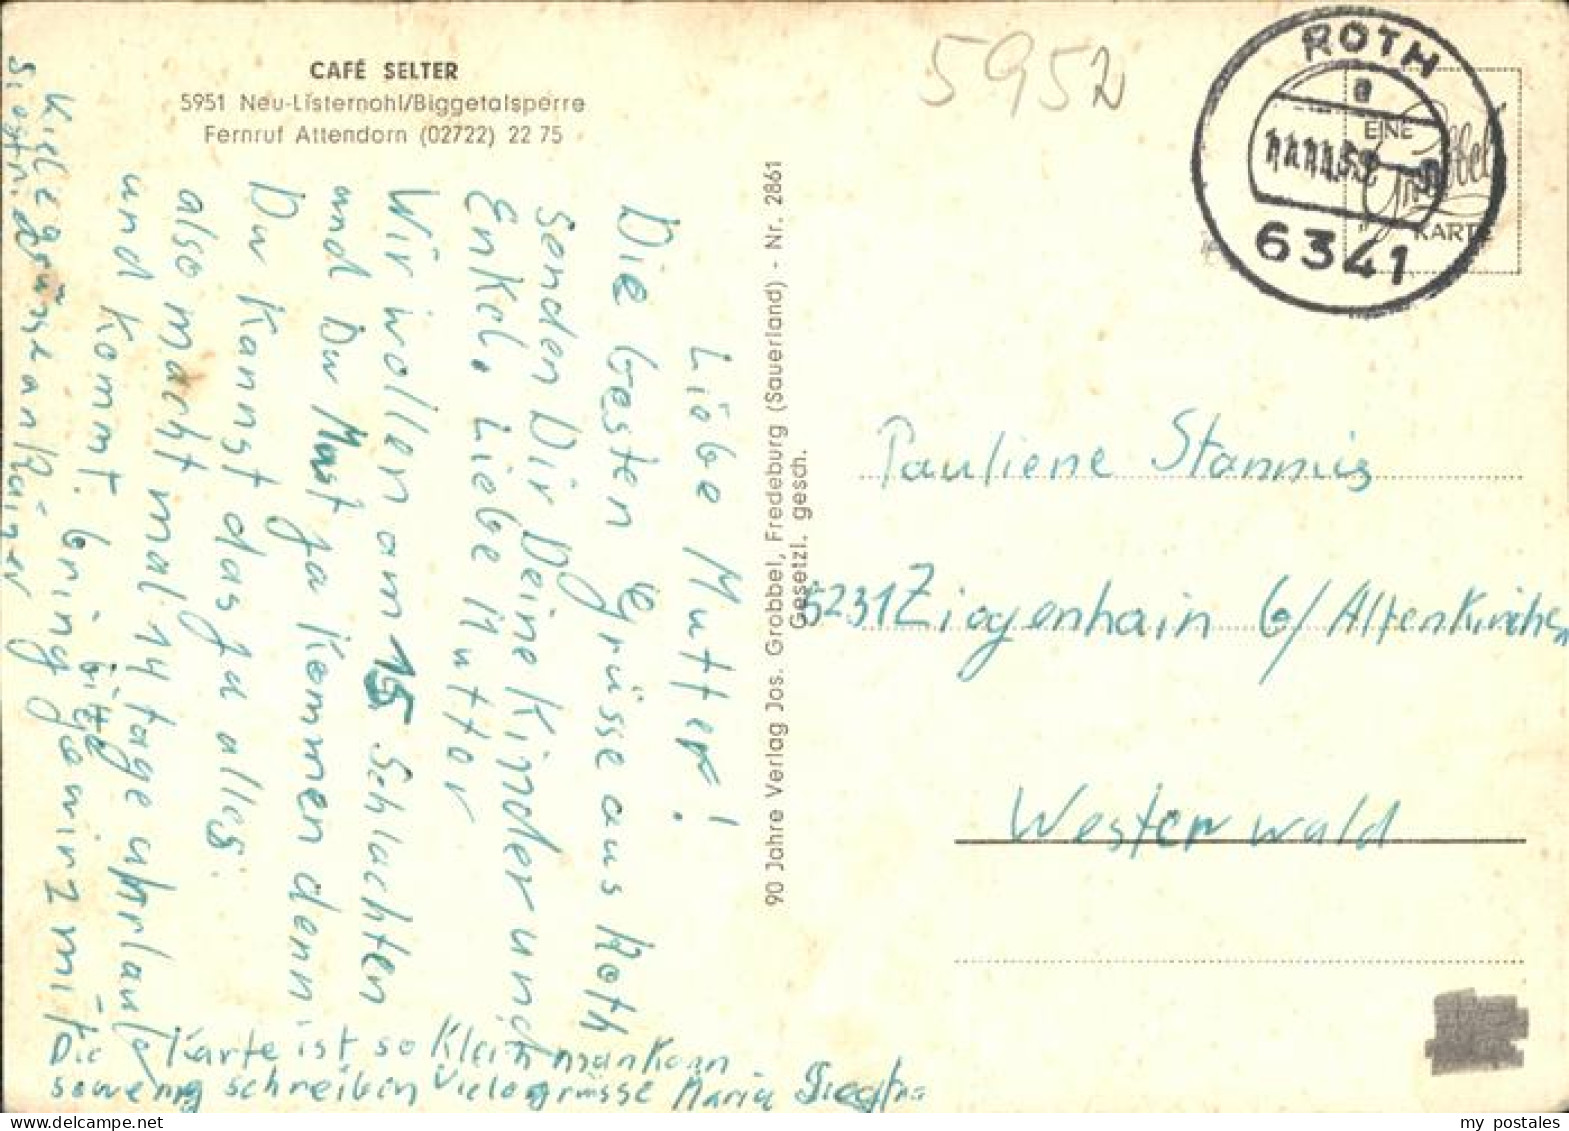 CAFÉ SELTER
5951 Neu-Listernohl/Biggetalsperre
Fernruf Attendorn (02722) 22 75
5952
ROTH
a
6341
EINE
Grobbel
KARTE
90 Jahre Verlag Jos. Grobbel, Fredeburg (Sauerland) - Nr. 2861
Gesetzl. gesch.
Liebe Mutter!
Die besten Grüsse aus Roth
senden Dir Deine Kinder und
Enkel. Liebe Mutter
Wir wollen am 15 Schlachten
und Du Must ja kommen denn
Du kannst das ja alles.
also macht mal 14 tage uhrlaub
und kommt. bitte
bring gewirz mit
Viele grüsse an Rainer
Die Karte ist so klein man kann
sowenig schreiben Viele grüsse Maria
Pauliene Stannius
5231 Ziegenhain b/Altenkirchen
Westerwald
my postales